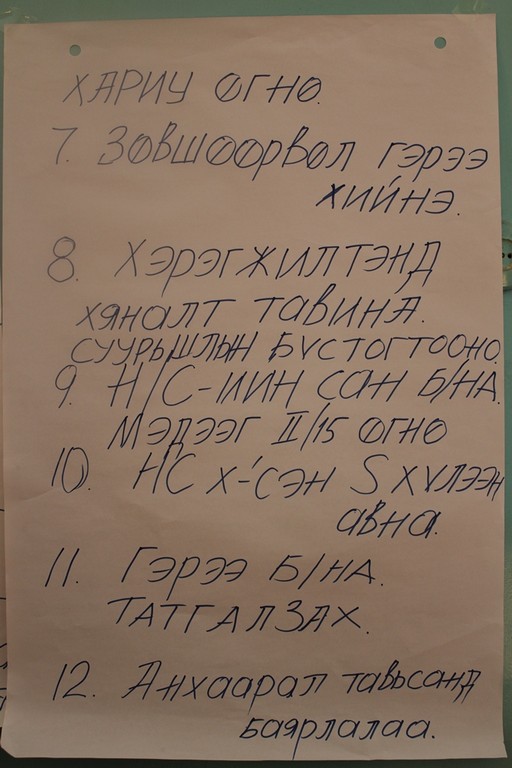 ХАРИУ ОГНО.
7. ЗӨВШӨӨРВӨЛ ГЭРЭЭ
ХИЙНЭ.
8. ХЭРЭГЖИЛТЭНД
ХЯНАЛТ ТАВИНА.
СУУРЬШЛЫН БҮС ТОГТООНО.
9. Н/С-ИЙН САН Б/НА.
МЭДЭЭГ II/15 ӨГНӨ
10. НС Х-СЭН S ХҮЛЭЭН
АВНА.
11. ГЭРЭЭ Б/НА.
ТАТГАЛЗАХ.
12. Анхаарал тавьсанд
баярлалаа.